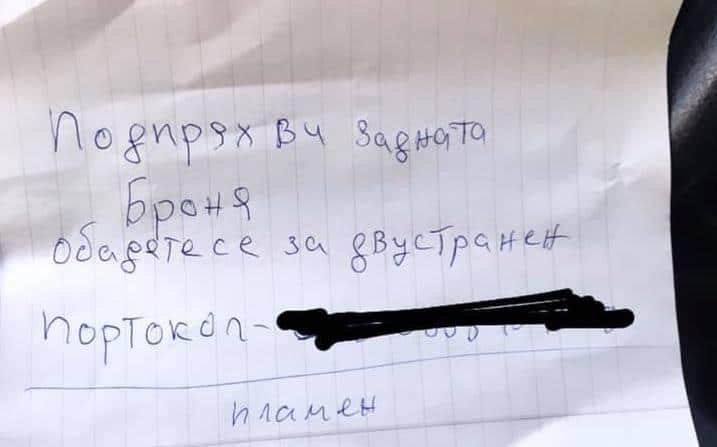 Подпрях Ви задната
Броня
обадете се за двустранен
портокол-
пламен